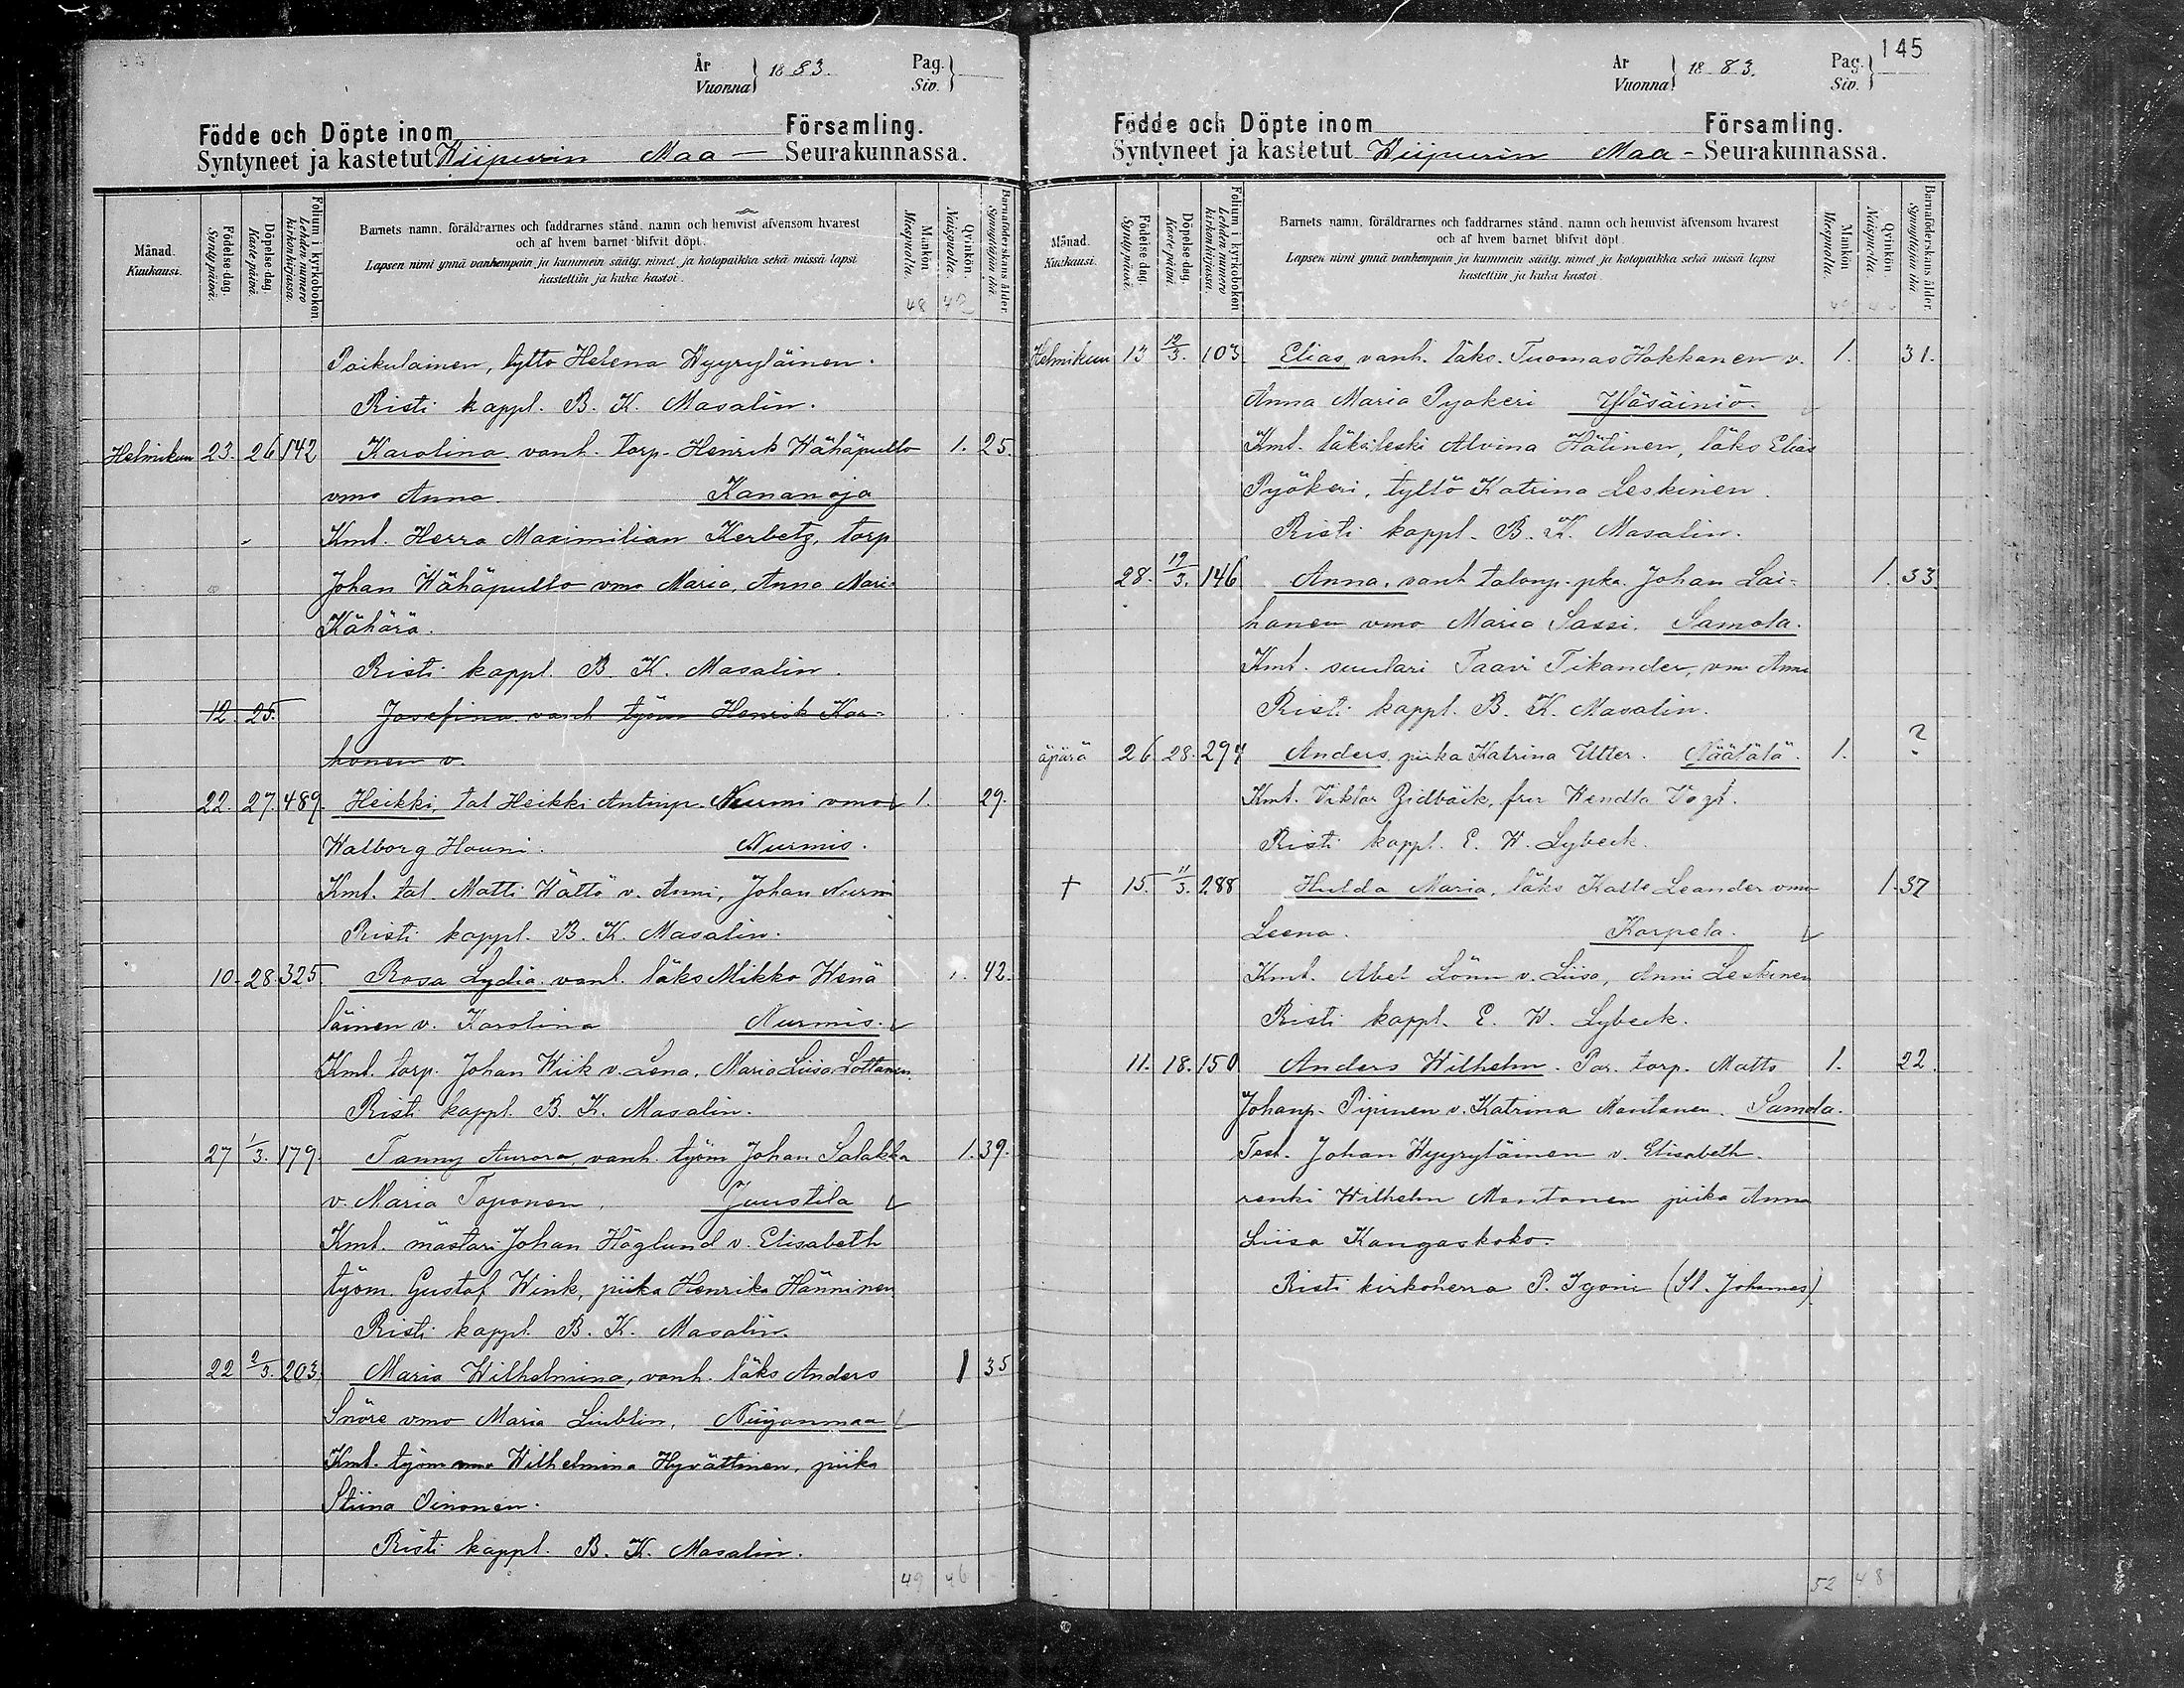 År
Vuonna } 1883.
Pag.
Siv. }
Födde och Döpte inom Församling.
Syntyneet ja kastetut Wiipurin Maa- Seurakunnassa.
Månad.
Kuukausi.
Födelse dag.
Synty päivä.
Döpelse dag.
Kaste päivä.
Folium i kyrkoboken
Lehden numero
kirkonkirjassa.
Barnets namn, föräldrarnes och faddrarnes stånd, namn och hemvist äfvensom hvarest
och af hvem barnet blifvit döpt.
Lapsen nimi ynnä vanhempain ja kummein sääty, nimet ja kotopaikka sekä missä lapsi
kastettiin ja kuka kastoi.
Mankön.
Miespuolia.
Qvinkön.
Naispuolia.
Barnaföderskans ålder.
Synnyttäjän ikä.
48 42
Paikulainen, tyttö Helena Hyyryläinen.
Risti kappl. B. K. Masalin.
Helmikuu 23. 26 142 Karolina vanh. torp. Henrik Wähäpulto 1. 25.
vmo Anna Kananoja
Kmt. Herra Maximilian Kerbetz, torp
Johan Wähäpulto vmo Maria, Anna Mari
Kähärä.
Risti kappl. B. K. Masalin.
12. 25. Josefina vanh työm Henrik Kor-
honen v.
22. 27. 489. Heikki, tal Heikki Antinp. Nurmi vmo 1. 29.
Walborg Houni. Nurmis.
Kmt. tal. Matti Wättö v. Anni, Johan Nurmi
Risti kappl. B. K. Masalin.
10. 28. 325. Rosa Lydia vanh. läks Mikko Henä 1. 42.
läinen v. Karolina Nurmis.
Kmt. torp. Johan Wiik v. Lena, Maria Liisa Lottanen.
Risti kappl. B. K. Masalin.
27 1/3. 179. Fanny Aurora, vanh. työm Johan Salakka 1. 39.
v. Maria Toponen, Juustila
Kmt. mästari Johan Höglund v. Elisabeth
työm. Gustaf Wink, piika Henrika Hänninen
Risti kappl. B. K. Masalin.
22 2/3. 203. Maria Wilhelmina, vanh. läks Anders 1 35
Snöre vmo Maria Liublin, Niijanmaa
Kmt. työm vmo Wilhelmina Hyvättinen, piika
Stiina Oinonen.
Risti kappl. B. K. Masalin.
49 46
145
År
Vuonna } 1883.
Pag.
Siv. }
Födde och Döpte inom Församling.
Syntyneet ja kastetut Wiipurin Maa- Seurakunnassa.
Månad.
Kuukausi.
Födelse dag.
Synty päivä.
Döpelse dag.
Kaste päivä.
Folium i kyrkoboken
Lehden numero
kirkonkirjassa.
Barnets namn, föräldrarnes och faddrarnes stånd, namn och hemvist äfvensom hvarest
och af hvem barnet blifvit döpt.
Lapsen nimi ynnä vanhempain ja kummein sääty, nimet ja kotopaikka sekä missä lapsi
kastettiin ja kuka kastoi.
Mankön.
Miespuolia.
Qvinkön.
Naispuolia.
Barnaföderskans ålder.
Synnyttäjän ikä.
Helmikuu 13 3. 103. Elias, vanh. läks. Tuomas Hakkanen v. 1. 31.
Anna Maria Pyokeri Yläsäiniö.
Kmt. läksileski Alvina Hälinen, läks Elias
Pyökeri, tyttö Katrina Leskinen.
Risti kappl. B. K. Masalin.
28. 19/3. 146 Anna, vanh talonp. pka. Johan Lai- 1. 33.
hanen vmo Maria Sassi. Samola.
Kmt. suutari Taavi Tikander, vm Anna
Risti kappl. B. K. Masalin.
äpärä 26 28. 297 Anders piika Katrina Utter. Näätälä. 1. ?
Kmt. Viktor Zidbäck, fru Wendla Vogt.
Risti kappl. E. W. Lybeck.
† 15. 11/3. 288 Hulda Maria, läks Kalle Leander vmo 1. 37
Leena. Karpela.
Kmt. Abel Lönn v. Liisa, Anni Leskinen
Risti kappl. E. W. Lybeck.
11. 18. 150 Anders Wilhelm. Par. torp. Matts 1. 22.
Johanp. Pipinen v. Katrina Mantanen. Samola.
Test. Johan Hyyryläinen v. Elisabeth.
renki Wilhelm Mantanen piika Anna
Liisa Kangaskoko.
Risti kirkoherra P. Igoni (St. Johannes)
52 48